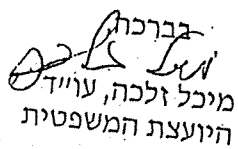 בברכה,
מיכל זלכה, עו"ד
היועצת המשפטית